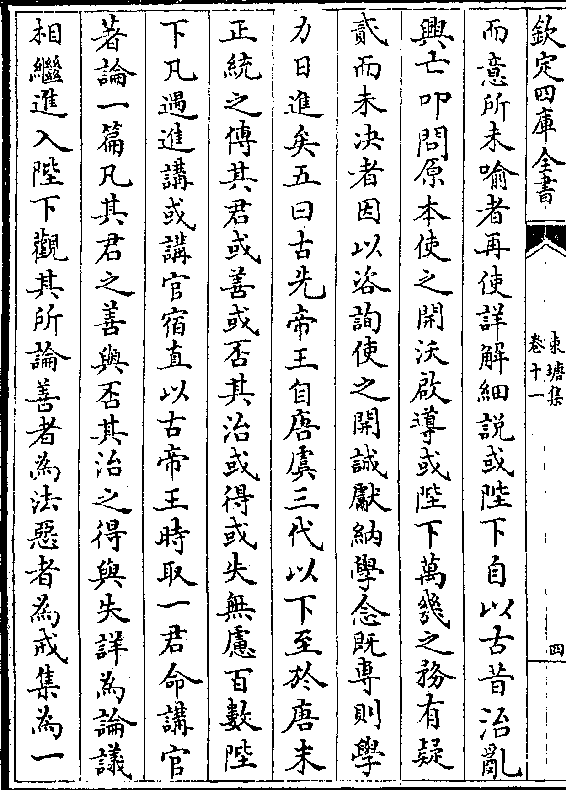 欽定四庫全書
東塘集
卷十一
四
而意所未喻者再使詳解細説或陛下自以古昔治亂
興亡叩問原本使之開沃啟導或陛下萬幾之務有疑
貳而未決者因以咨詢使之開誠獻納學念既専則學
力日進矣五曰古先帝王自唐虞三代以下至於唐末
正統之傳其君或善或否其治或得或失無慮百數陛
下凡遇進講或講官宿直以古帝王時取一君命講官
著論一篇凡其君之善與否其治之得與失詳為論議
相繼進入陛下觀其所論善者為法惡者為戒集為一